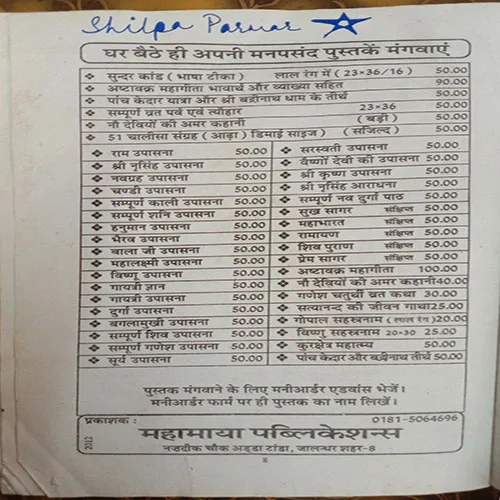 Shilpa Parmar
घर बैठे ही अपनी मनपसंद पुस्तकें मंगवाएं
❖ सुन्दर कांड (भाषा टीका) लाल रंग में (23×36/16) 50.00
❖ अष्टावक्र महागीता भावार्थ और व्याख्या सहित 90.00
❖ पांच केदार यात्रा और श्री बद्रीनाथ धाम के तीर्थ 50.00
❖ सम्पूर्ण व्रत पर्व एवं त्यौहार 23×36 50.00
❖ नौ देवियों की अमर कहानी (बड़ी) 50.00
❖ 51 चालीसा संग्रह (आढ़ा) डिमाई साइज) (सजिल्द) 50.00
❖ राम उपासना 50.00
❖ श्री नृसिंह उपासना 50.00
❖ नवग्रह उपासना 50.00
❖ चण्डी उपासना 50.00
❖ सम्पूर्ण काली उपासना 50.00
❖ सम्पूर्ण शनि उपासना 50.00
❖ हनुमान उपासना 50.00
❖ भैरव उपासना 50.00
❖ बाला जी उपासना 50.00
❖ महालक्ष्मी उपासना 50.00
❖ विष्णू उपासना 50.00
❖ गायत्री ज्ञान 50.00
❖ गायत्री उपासना 50.00
❖ दुर्गा उपासना 50.00
❖ बगलामुखी उपासना 50.00
❖ सम्पूर्ण शिव उपासना 50.00
❖ सम्पूर्ण गणेश उपासना 50.00
❖ सूर्य उपासना 50.00
❖ सरस्वती उपासना 50.00
❖ वैष्णों देवी की उपासना 50.00
❖ श्री कृष्ण उपासना 50.00
❖ श्री नृसिंह आराधना 50.00
❖ सम्पूर्ण नव दुर्गा पाठ 50.00
❖ सुख सागर संक्षिप्त 50.00
❖ महाभारत संक्षिप्त 50.00
❖ रामायण संक्षिप्त 50.00
❖ शिव पुराण संक्षिप्त 50.00
❖ प्रेम सागर संक्षिप्त 50.00
❖ अष्टावक्र महागीता 100.00
❖ नौ देवियों की अमर कहानी 40.00
❖ गणेश चतुर्थी व्रत कथा 30.00
❖ सत्यानन्द की जीवन गाथा 25.00
❖ गोपाल सहस्त्रनाम (लाल रंग) 20.00
❖ विष्णू सहस्त्रनाम 20×30 25.00
❖ कुरुक्षेत्र महात्म्य 50.00
❖ पांच केदार और बद्रीनाथ तीर्थ 50.00
पुस्तक मंगवाने के लिए मनीआर्डर एडवांस भेजें।
मनीआर्डर फार्म पर ही पुस्तक का नाम लिखें।
प्रकाशक : 0181-5064696
महामाया पब्लिकेशन्स
नज़दीक चौक अड्डा टांडा, जालन्धर शहर-8
2012